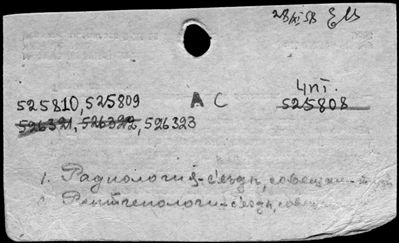 28/XI 58
4пг.
525810, 525809 А С 525808
526321, 526322, 526323
1. Радиология-съезды, совещан-
Рентгенологи-съезды, совещ